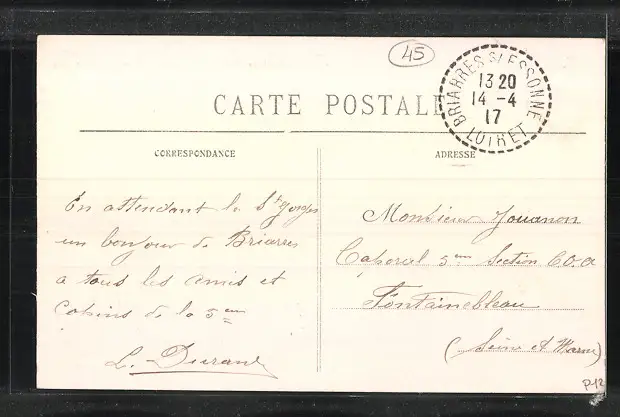 45
BRIARRES S/ ESSONNE
13 20
14 -4
17
LOIRET
CARTE POSTALE
CORRESPONDANCE
ADRESSE
En attendant la St Georges
un bonjour de Briarres
a tous les amis et
copins de la 5eme
L. Durand
Monsieur Jouanon
Caporal 5eme Section C.O.A
Fontainebleau
(Seine et Marne)
P12